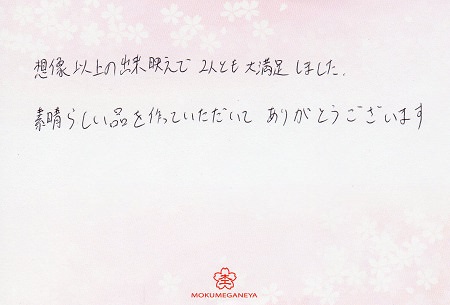 想像以上の出来映えで 2人とも大満足しました.
素晴らしい品を作っていただいて ありがとうございます
MOKUMEGANEYA